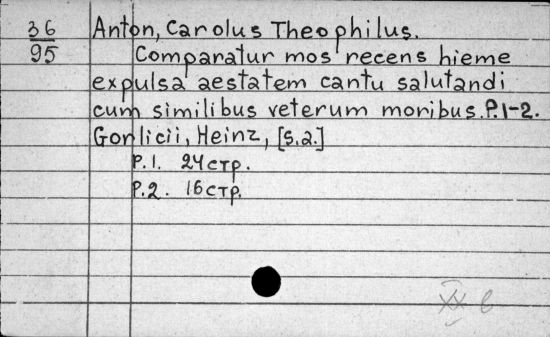 36 Anton, Carolus Theophilus.
95 Comparatur mos recens hieme
expulsa aestatem cantu salutandi
cum similibus veterum moribus. P.1-2.
Gorlicii, Heinz, [s.a.]
P.1. 24 стр.
P.2. 16 стр.
XX в